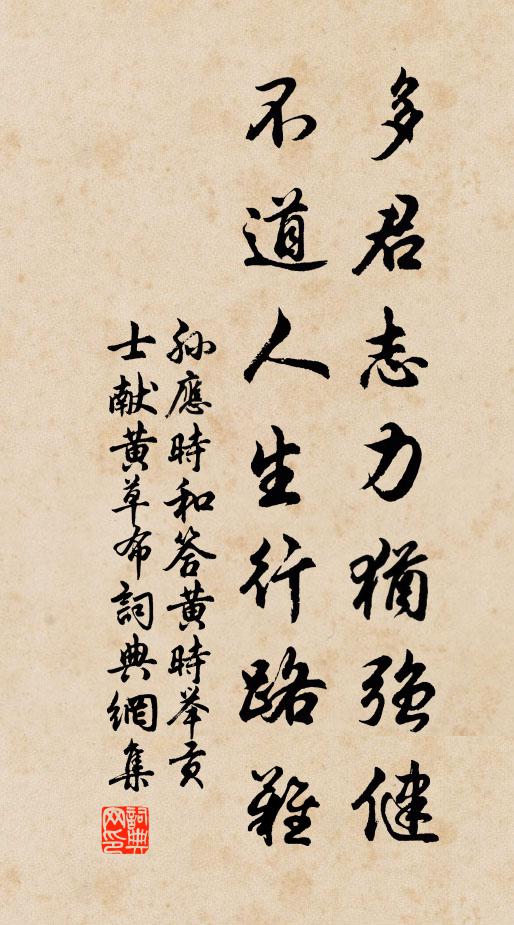 多君志力犹强健
不道人生行路难
孙應時和答黄時举贡
士献黄草布詞典網集
詞典网印